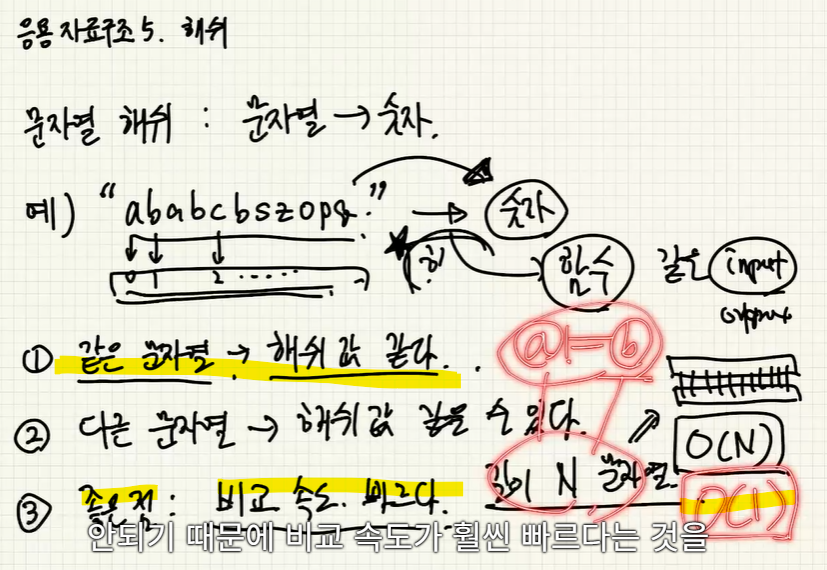 응용 자료구조 5. 해쉬
문자열 해쉬 : 문자열 → 숫자.
예) “ababcbszopq.” → 숫자
0 1 2 ..... 함수 같은 input
output
① 같은 문자열 → 해쉬 값 같다. a != b
② 다른 문자열 → 해쉬 값 같을 수 있다. O(N)
③ 좋은 점 : 비교 속도. 빠르다. 길이 N 문자열. O(1)
안되기 때문에 비교 속도가 훨씬 빠르다는 것을